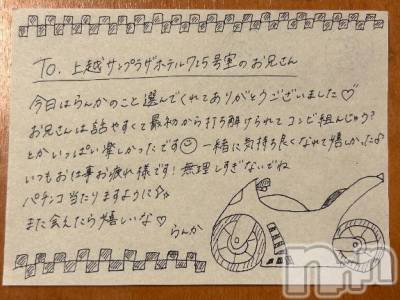 To. 上越サンプラザホテル715号室のお兄さん
今日はらんかのこと選んでくれてありがとうございました♡
お兄さんは話やすくて最初から打ち解けられてコンビ組んじゃう?
とかいっぱい楽しかったです☺ 一緒に気持ち良くなれて嬉しかった♪
いつもお仕事お疲れ様です!無理しすぎないでね
パチンコ当たりますように☆
また会えたら嬉しいな♡
らんか